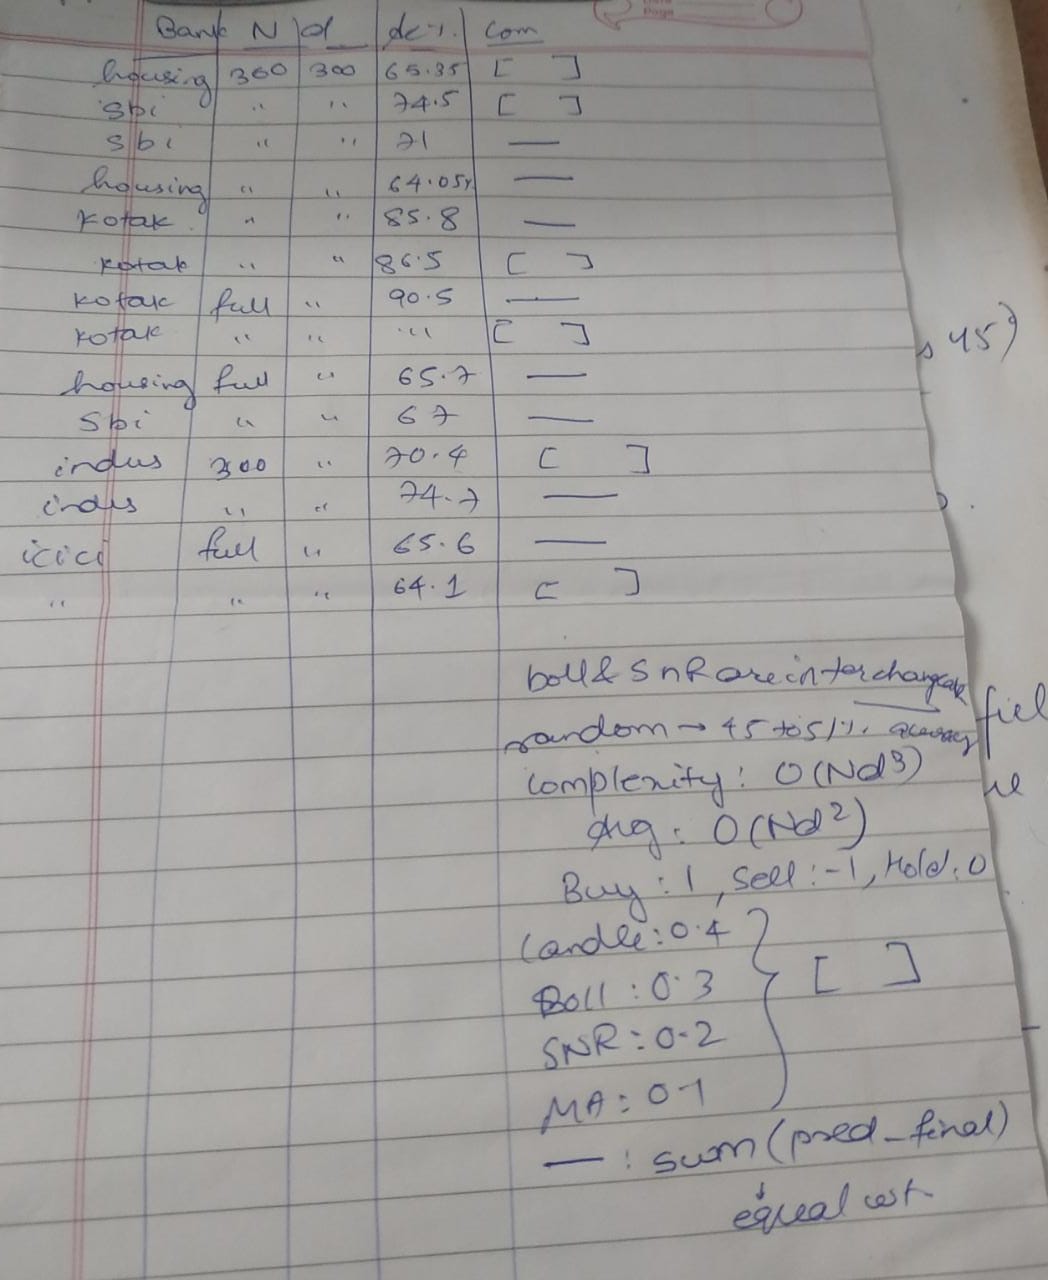 Page
Bank N d ac%. Com
housing 360 300 65.35 [ ]
Sbi " " 74.5 [ ]
Sbi " " 71 —
housing " " 64.05% —
Kotak " " 85.8 —
Kotak " " 86.5 [ ]
Kotak full " 90.5 —
Kotak " " " [ ]
housing full " 65.7 —
Sbi " " 67 —
indus 300 " 70.4 [ ]
indus " " 74.7 —
icici full " 65.6 —
" " " 64.1 [ ]
45)
boll & SnR are interchangeable
random → 45 to 51%. accuracy
fiel
Complexity: O(Nd³)
Avg: O(Nd²)
Buy: 1, Sell: -1, Hold: 0
Candle: 0.4
Boll: 0.3 [ ]
SNR: 0.2
MA: 0.1
— : sum(pred_final)
↓
equal wt.